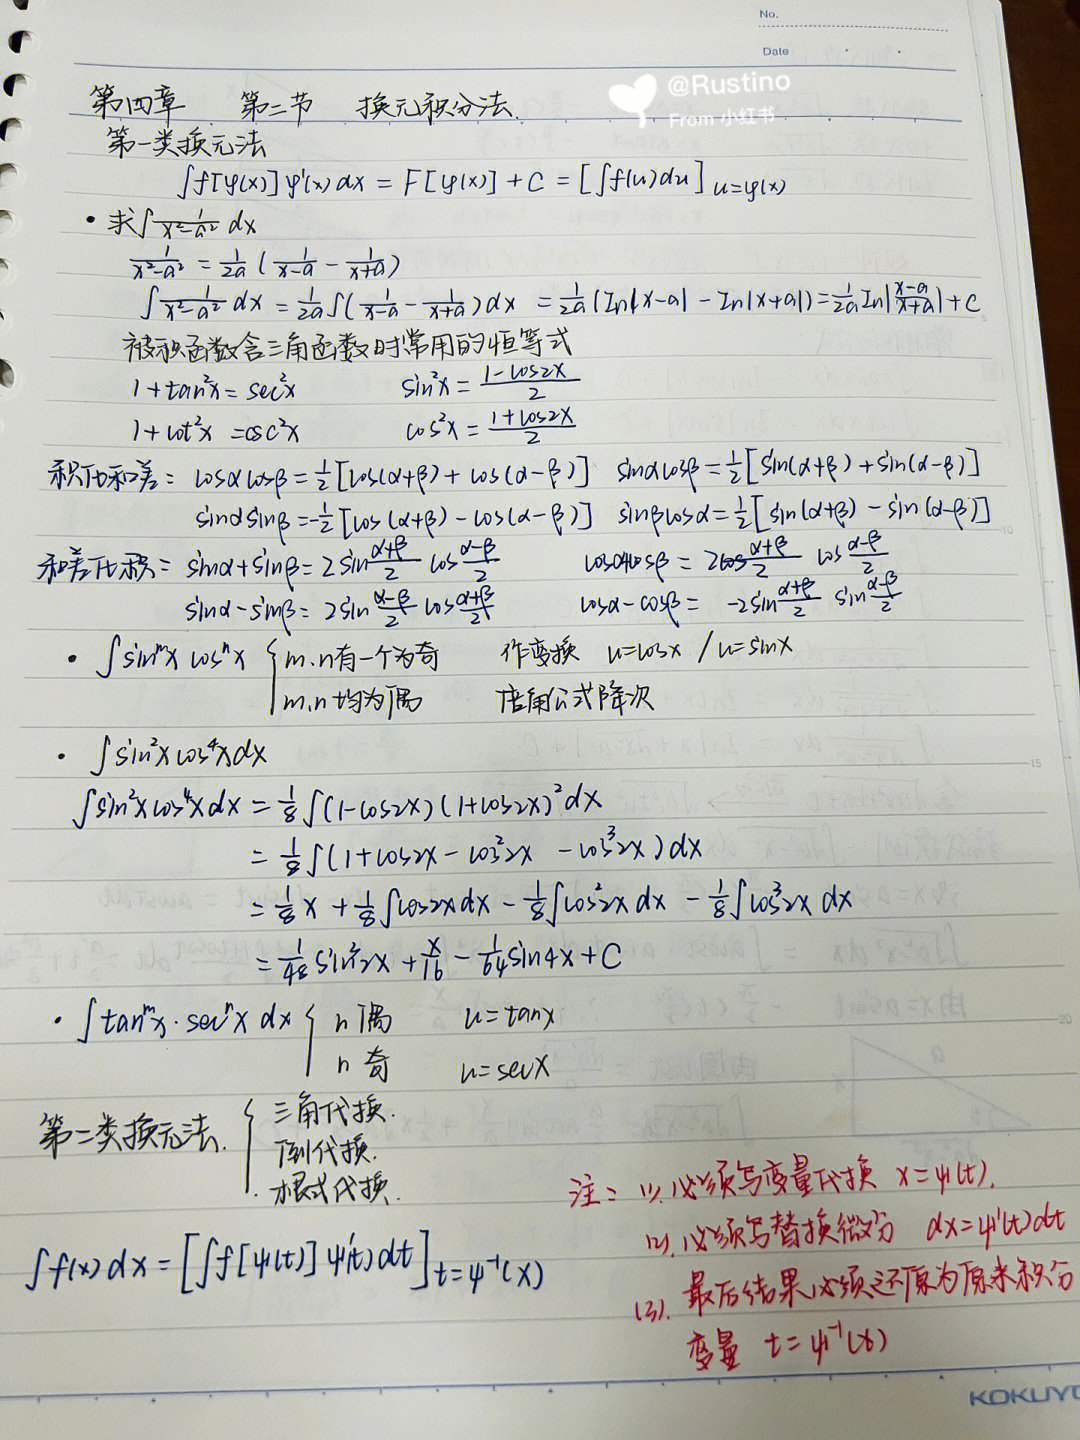 No.
Date
@Rustino
From 小红书
第四章 第二节 换元积分法.
第一类换元法
∫f[φ(x)]φ'(x)dx = F[φ(x)] + C = [∫f(u)du] u=φ(x)
• 求∫1/(x²-a²) dx
1/(x²-a²) = 1/2a (1/(x-a) - 1/(x+a))
∫1/(x²-a²) dx = 1/2a ∫(1/(x-a) - 1/(x+a))dx = 1/2a (In|x-a| - In|x+a|) = 1/2a In|(x-a)/(x+a)| + C
被积函数含三角函数时常用的恒等式
1+tan²x = sec²x sin²x = (1-cos2x)/2
1+cot²x = csc²x cos²x = (1+cos2x)/2
积化和差: cosαcosβ = 1/2[cos(α+β) + cos(α-β)] sinαcosβ = 1/2[sin(α+β) + sin(α-β)]
sinαsinβ = -1/2[cos(α+β) - cos(α-β)] sinβcosα = 1/2[sin(α+β) - sin(α-β)]
和差化积: sinα+sinβ = 2sin (α+β)/2 cos (α-β)/2 cosα+cosβ = 2cos (α+β)/2 cos (α-β)/2
sinα-sinβ = 2sin (α-β)/2 cos (α+β)/2 cosα-cosβ = -2sin (α+β)/2 sin (α-β)/2
• ∫sinᵐx cosⁿx { m.n有一个为奇 作变换 u=cosx / u=sinx
m.n均为偶 倍角公式降次
• ∫sin²x cos⁴x dx
∫sin²x cos⁴x dx = 1/8 ∫(1-cos2x)(1+cos2x)² dx
= 1/8 ∫(1+cos2x - cos²2x - cos³2x)dx
= 1/8 x + 1/8 ∫cos2x dx - 1/8 ∫cos²2x dx - 1/8 ∫cos³2x dx
= 1/48 sin³2x + x/16 - 1/64 sin4x + C
• ∫tanᵐx · secⁿx dx { n偶 u=tanx
n奇 u=secx
第二类换元法. { 三角代换.
倒代换.
根式代换.
∫f(x)dx = [∫f[ψ(t)]ψ'(t)dt] t=ψ⁻¹(x)
注: (1). 必须写变量代换 x=ψ(t).
(2). 必须写替换微分 dx=ψ'(t)dt
(3). 最后结果必须还原为原来积分
变量 t=ψ⁻¹(x)
5
10
15
20
KOKUYO